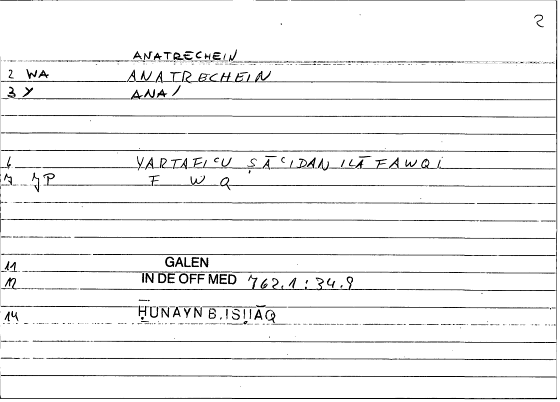 2
ANATRECHEIN
2 WA ANATRECHEIN
3 Y ANA/
6 YARTAFIʿU ṢĀʿIDAN ILĀ FAWQI
7 JP F W Q
11 GALEN
12 IN DE OFF MED 762.1 : 34.9
14 ḤUNAYN B.ISḤĀQ